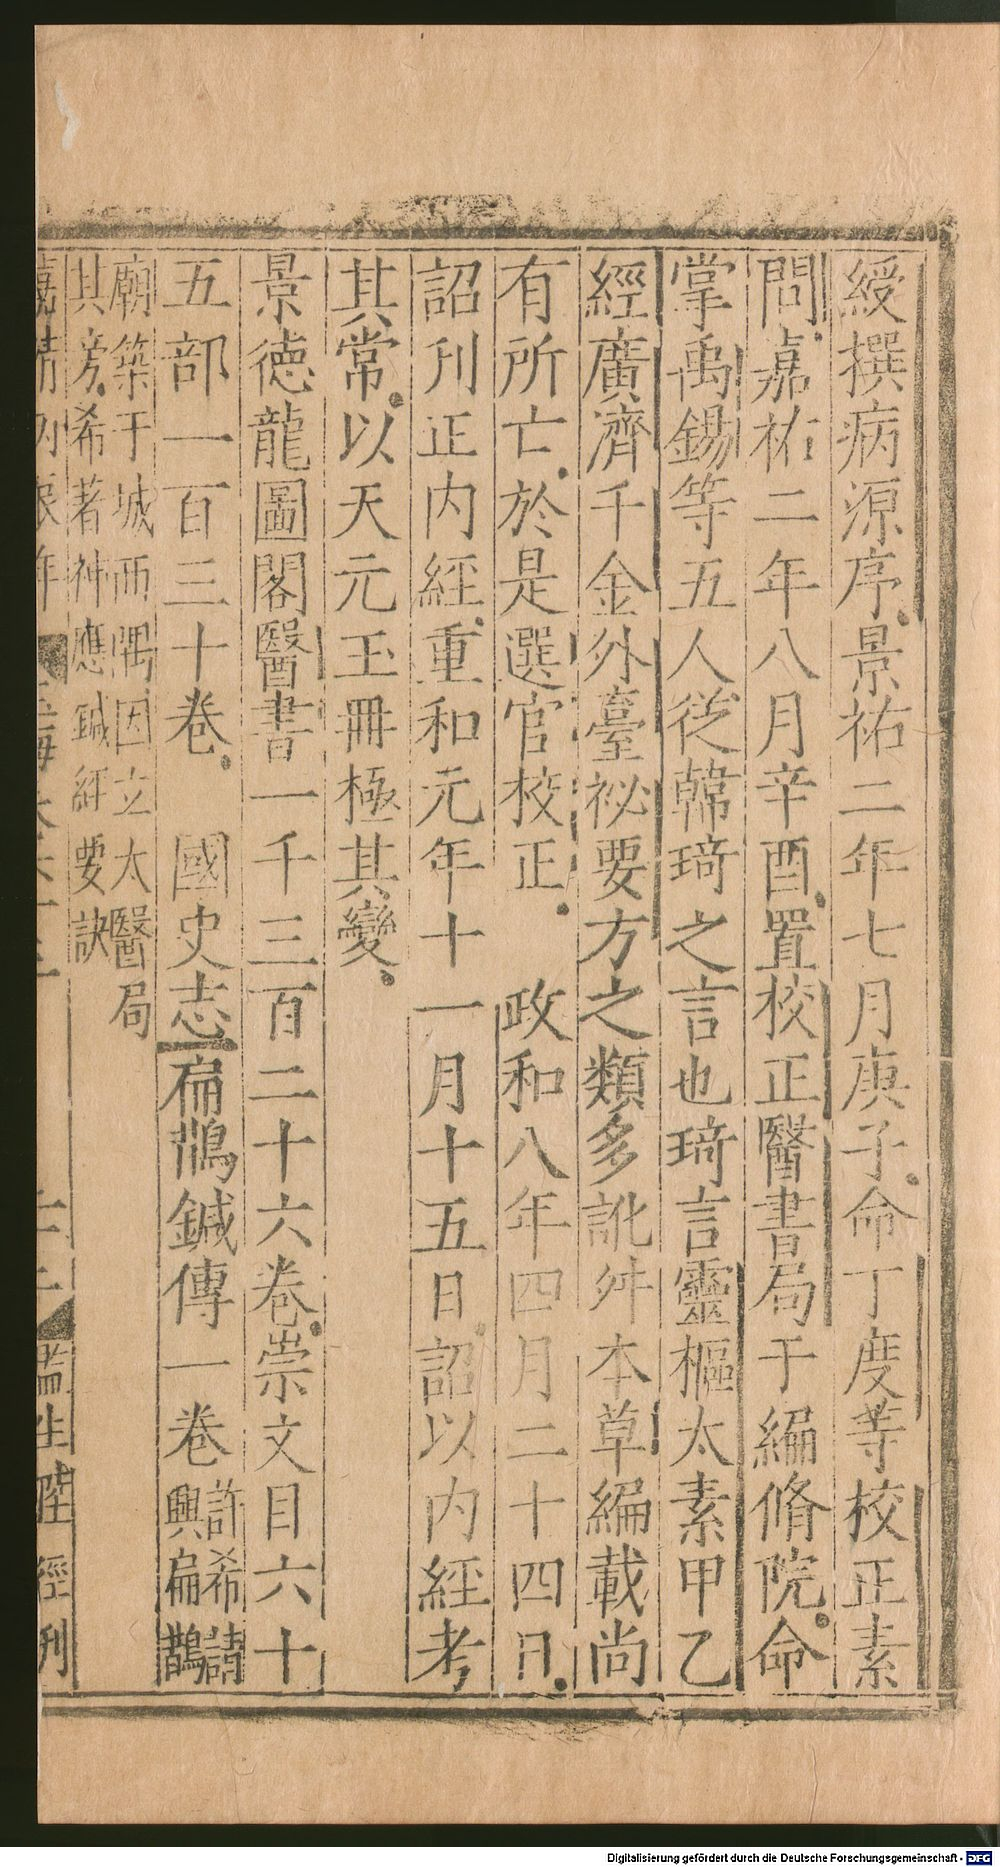 綬撰病源序景祐二年七月庚子命丁度等校正素
問嘉祐二年八月辛酉置校正醫書局于編脩院命
掌禹錫等五人從韓琦之言也琦言靈樞太素甲乙
經廣濟千金外臺祕要方之類多訛舛本草編載尚
有所亡於是選官校正　政和八年四月二十四日
詔刊正内經重和元年十一月十五日詔以内經考
其常以天元玉冊極其變
景德龍圖閣醫書一千三百二十六卷崇文目六十
五部一百三十卷　國史志扁鵲鍼傳一卷許希請興扁鵲
廟築于城西隅因立太醫局
其旁希著神應鍼經要訣
嘉靖丙辰年
監生陞經刊
Digitalisierung gefördert durch die Deutsche Forschungsgemeinschaft - DFG